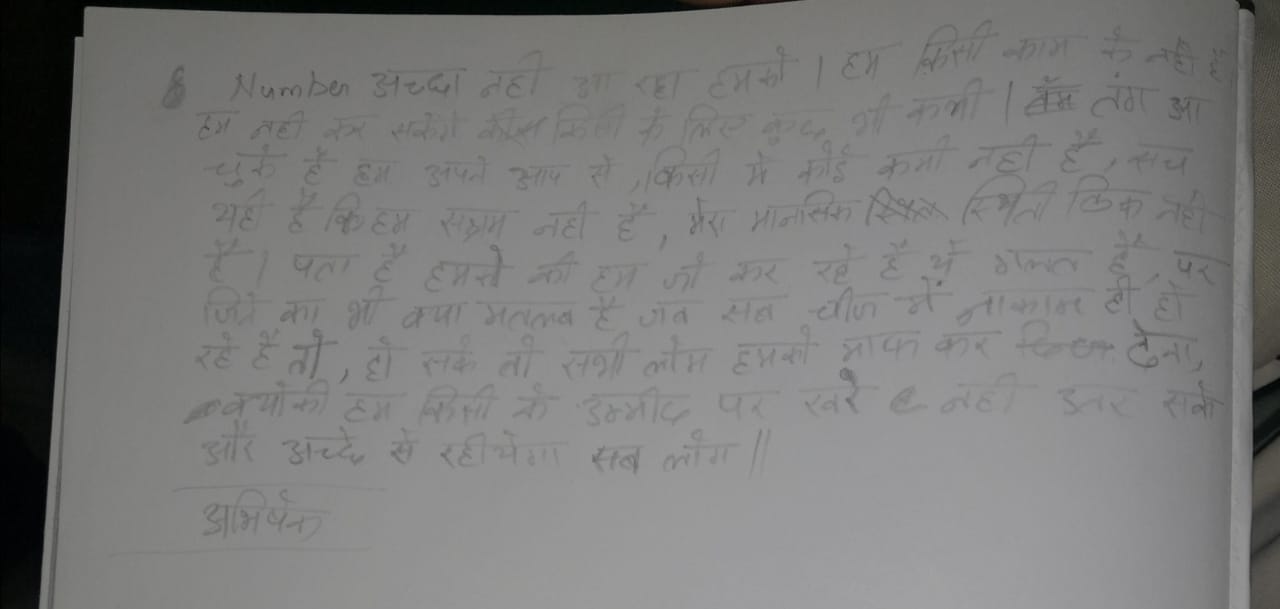 Number अच्छा नही आ रहा हमको । हम किसी काम के नही है
हम नही कर सकेंगे किसी के लिए कुछ भी कभी । तंग आ
चुके है हम अपने आप से, किसी मे कोई कमी नही है, सच
यही है कि हम सक्षम नही है, मेरा मानसिक स्थिती ठिक नही
है । पता है हमको की हम जो कर रहे है ये गलत है, पर
जिने का भी क्या मतलब है जब सब चीज में नाकाम ही हो
रहे है तो, हो सके तो सभी लोग हमको माफ कर देना,
क्योकी हम किसी के उम्मीद पर खरे नही उतर सके
और अच्छे से रहीयेगा सब लोग ||
अभिषेक